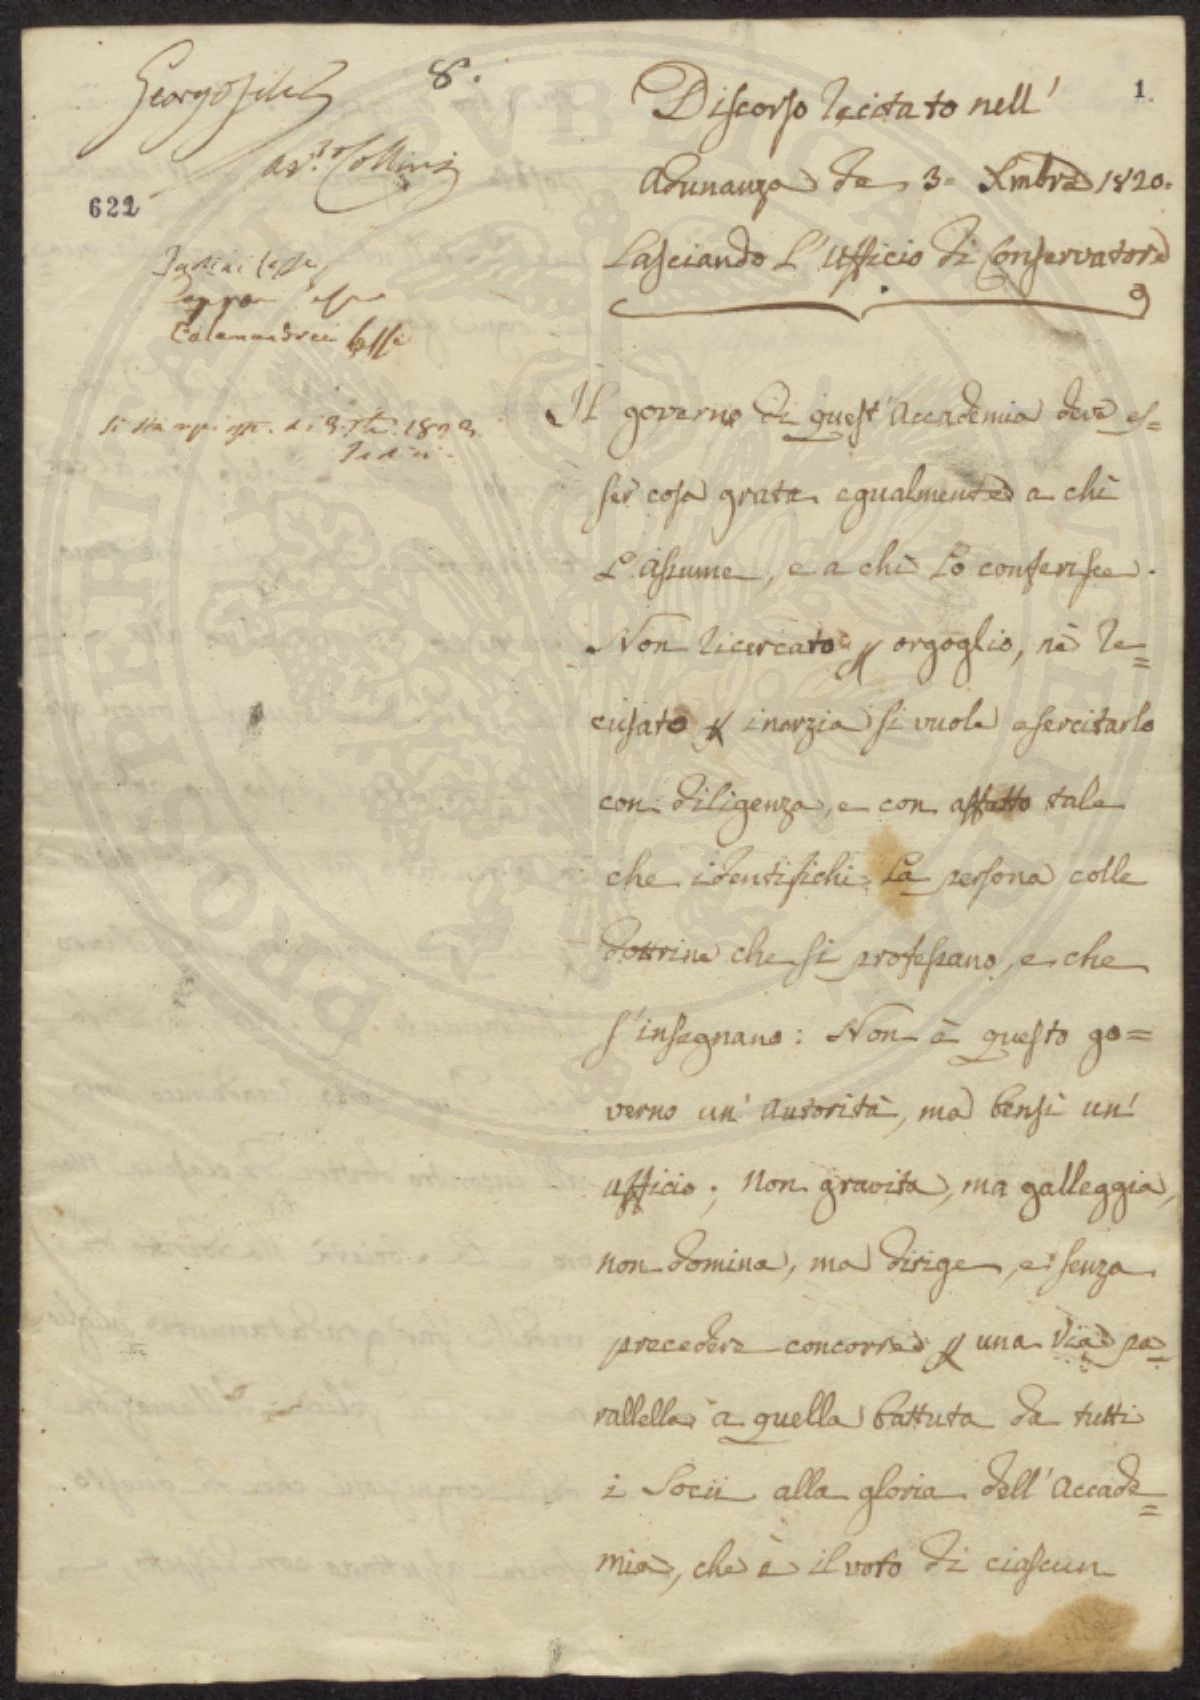 Georgofili
8.
1.
Avv.to Collini
622
Tadini lesse
Lesse
Calamandrei lesse
Si stampi
1823
Tadini
Discorso recitato nell'
Adunanza de 3. Xmbre 1820.
Lasciando L'Ufficio di Conservatore
Il governo di quest'Accademia deve es=
ser cosa grata egualmente a chi
L'assume, e a chi Lo conferisce.
Non ricercato p orgoglio, nè re=
cusato p inerzia si vuole esercitarlo
con diligenza, e con affetto tale
che identifichi La persona colle
dottrine che si professano, e che
s'insegnano: Non è questo go=
verno un'Autorità, ma bensì un'
ufficio; non gravita, ma galleggia,
non domina, ma dirige, e senza
precedere concorre p una via pa=
rallella a quella battuta da tutti
i Socii alla gloria dell'Accade=
mia, che è il voto di ciascun
PUBLICAE
PROSPERITATI